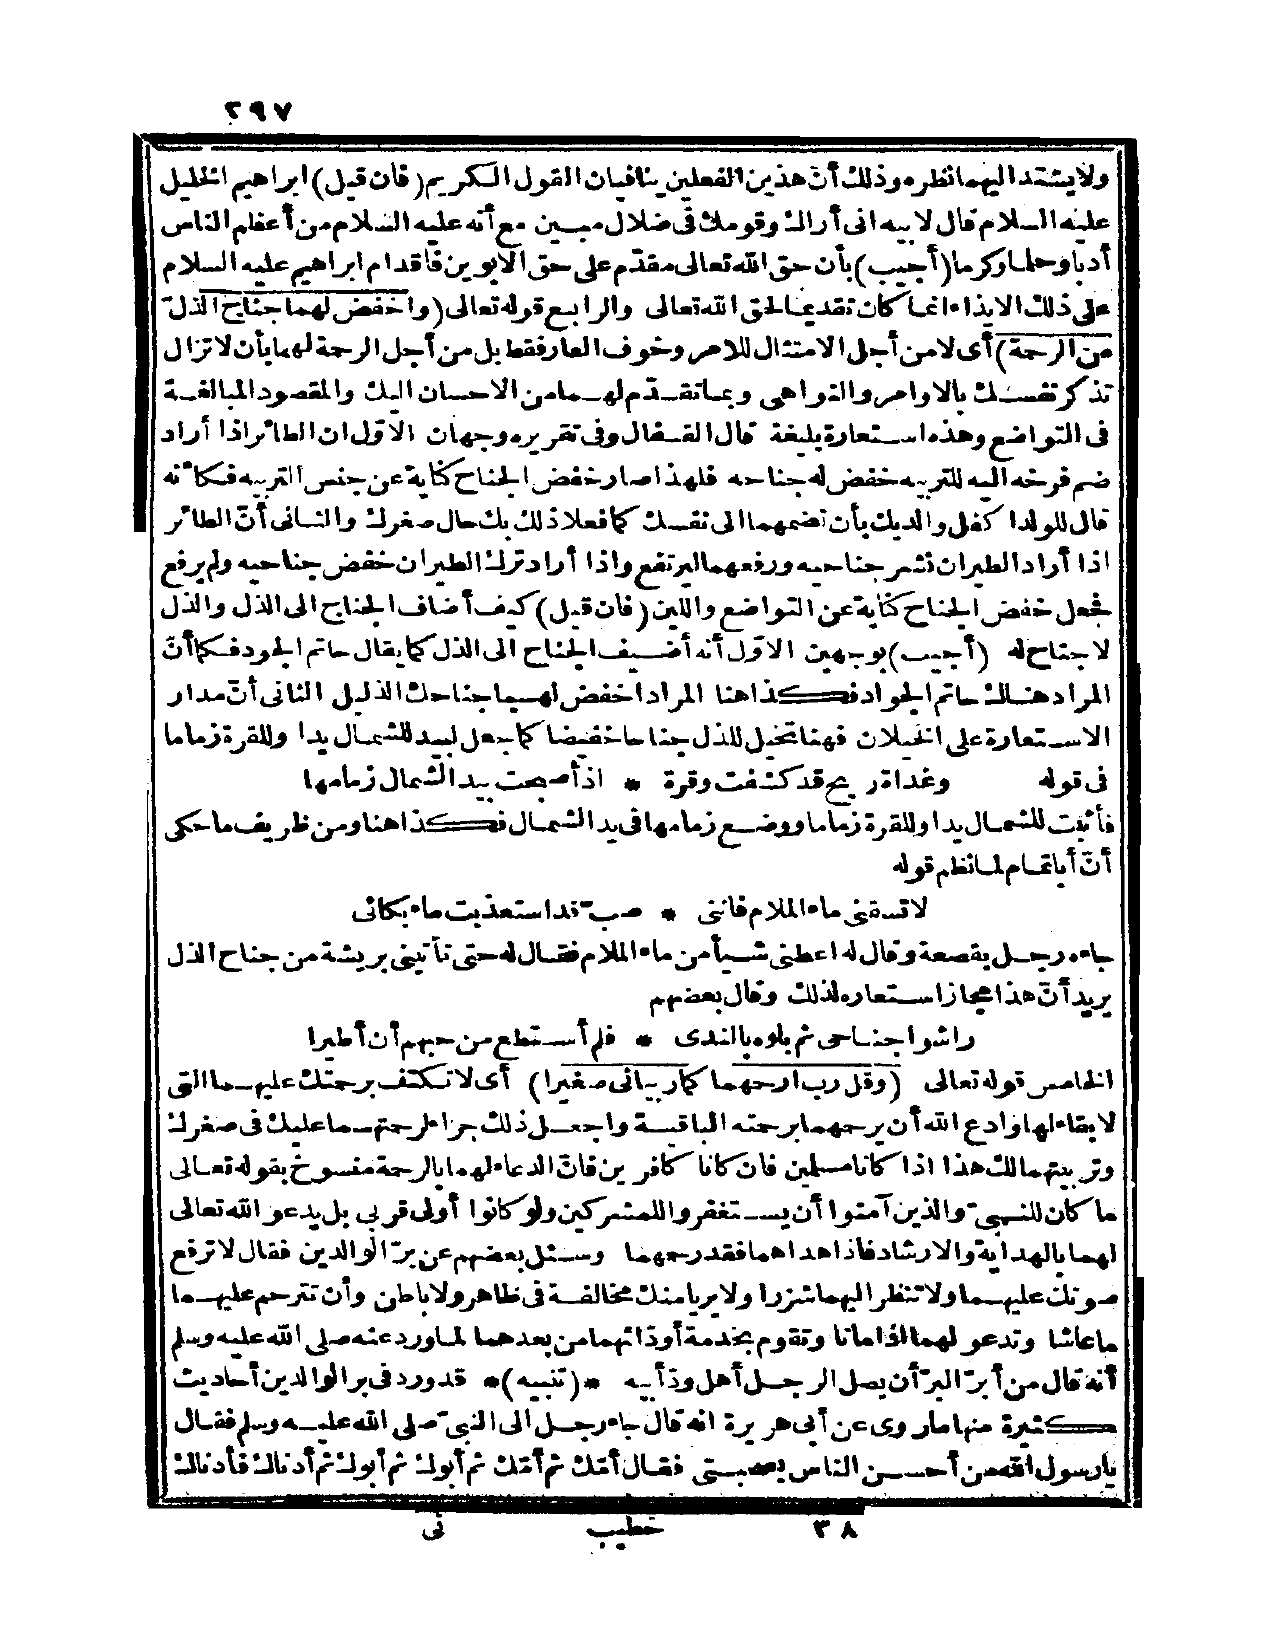 ٢٩٧
ولا يشتد اليهما نظره وذلك أنّ هذين الفعلين ينافيان القول الكريم (فان قيل) ابراهيم الخليل
عليه السلام قال لابيه انى أراك وقومك فى ضلال مبين مع أنه عليه السلام من أعظم الناس
أدبا وحلما وكرما (أجيب) بأن حق الله تعالى مقدّم على حق الابوين فاقدام ابراهيم عليه السلام
على ذلك الايذاء انما كان تقديما لحق الله تعالى والرابع قوله تعالى (واخفض لهما جناح الذلّ
من الرحمة) أى لا من أجل الامتثال للامر وخوف العار فقط بل من أجل الرحمة لهما بأن لا تزال
تذكر نفسك بالاوامر والنواهى وبما تقدّم لهما من الاحسان اليك والمقصود المبالغة
فى التواضع وهذه استعارة بليغة قال القفال وفى تقريره وجهان الاوّل ان الطائر اذا أراد
ضم فرخه اليه للتربيه خفض له جناحه فلهذا صار خفض الجناح كناية عن جنس التربيه فكأنه
قال للولد اكفل والديك بأن تضمهما الى نفسك كما فعلا ذلك بك حال صغرك والثانى أنّ الطائر
اذا أراد الطيران نشر جناحيه ورفعهما ليرتفع واذا أراد ترك الطيران خفض جناحيه ولم يرفع
فجعل خفض الجناح كناية عن التواضع واللين (فان قيل) كيف أضاف الجناح الى الذل والذل
لا جناح له (أجيب) بوجهين الاوّل أنه أضيف الجناح الى الذل كما يقال حاتم الجود فكما أنّ
المراد هناك حاتم الجواد فكذا هنا المراد اخفض لهما جناحك الذليل الثانى أنّ مدار
الاستعارة على الخيلان فهنا تخيل للذل جناحا خفيضا كما جعل لبيد للشمال يدا وللقرة زماما
فى قوله وغداة ريح قد كشفت وقرة * اذ أصبحت بيد الشمال زمامها
فأثبت للشمال يدا وللقرة زماما ووضع زمامها فى يد الشمال فكذا هنا ومن ظريف ما حكى
أنّ أبا تمام لما نظم قوله
لا تسقنى ماء الملام فاننى * صبّ قد استعذبت ماء بكائى
جاءه رجل بقصعة وقال له اعطنى شيأ من ماء الملام فقال له حتى تأتينى بريشة من جناح الذل
يريد أنّ هذا مجاز استعاره لذلك وقال بعضهم
راشوا جناحى ثم بلوه بالندى * فلم أستطع من حبهم أن أطيرا
الخامس قوله تعالى (وقل رب ارحمهما كما ربيانى صغيرا) أى لا تكتف برحمتك عليهما التى
لا بقاء لها وادع الله أن يرحمهما برحمته الباقية واجعل ذلك جزاء لرحمتهما عليك فى صغرك
وتربيتهما لك هذا اذا كانا مسلمين فان كانا كافرين فانّ الدعاء لهما بالرحمة منسوخ بقوله تعالى
ما كان للنبىّ والذين آمنوا أن يستغفروا للمشركين ولو كانوا أولى قربى بل يدعو الله تعالى
لهما بالهداية والارشاد فاذا هداهما فقد رحمهما وسئل بعضهم عن برّ الوالدين فقال لا ترفع
صوتك عليهما ولا تنظر اليهما شزرا ولا يريا منك مخالفة فى ظاهر ولا باطن وأن تترحم عليهما
ما عاشا وتدعو لهما اذا ماتا وتقوم بخدمة أودّائهما من بعدهما لما ورد عنه صلى الله عليه وسلم
أنه قال من أبرّ البرّ أن يصل الرجل أهل ودّ أبيه *(تنبيه)* قد ورد فى بر الوالدين أحاديث
كثيرة منها ما روى عن أبى هريرة انه قال جاء رجل الى النبىّ صلى الله عليه وسلم فقال
يا رسول الله من أحسن الناس بصحبتى فقال أمّك ثم أمّك ثم أبوك ثم أبوك ثم أدناك فأدناك
٣٨ خطيب نى